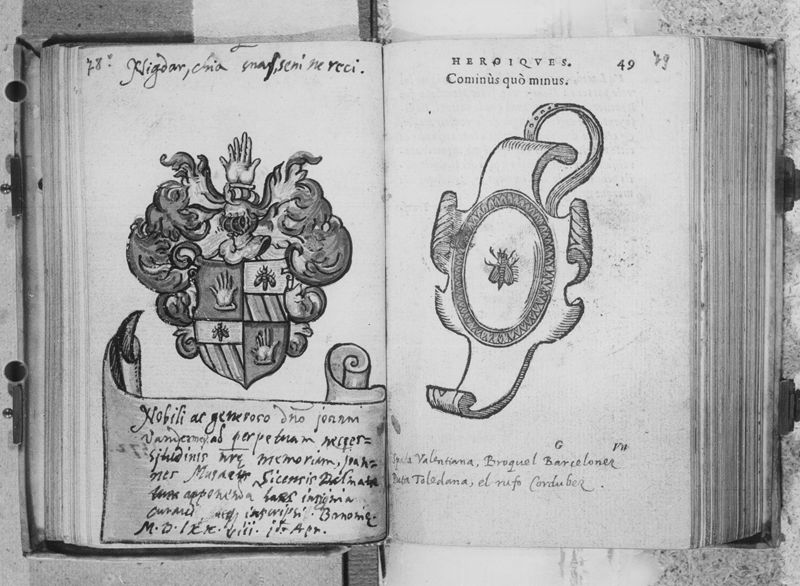 78.
Nigdar, chia snas, seni ne reci.
Nobili ac generoso dño joanni
ad perpetuam neces=
situdinis nr̄ę memoriam, joan=
nes Sicensis Dalmata
apponenda insignia
curavi inscripsi.
M. D. LXX. Apr.
HEROIQVES. 49 79
Cominùs quò minus.
G
Spada Valentiana, Broquel Barcelonez
Puta Toledana, el rufo Cordubez.